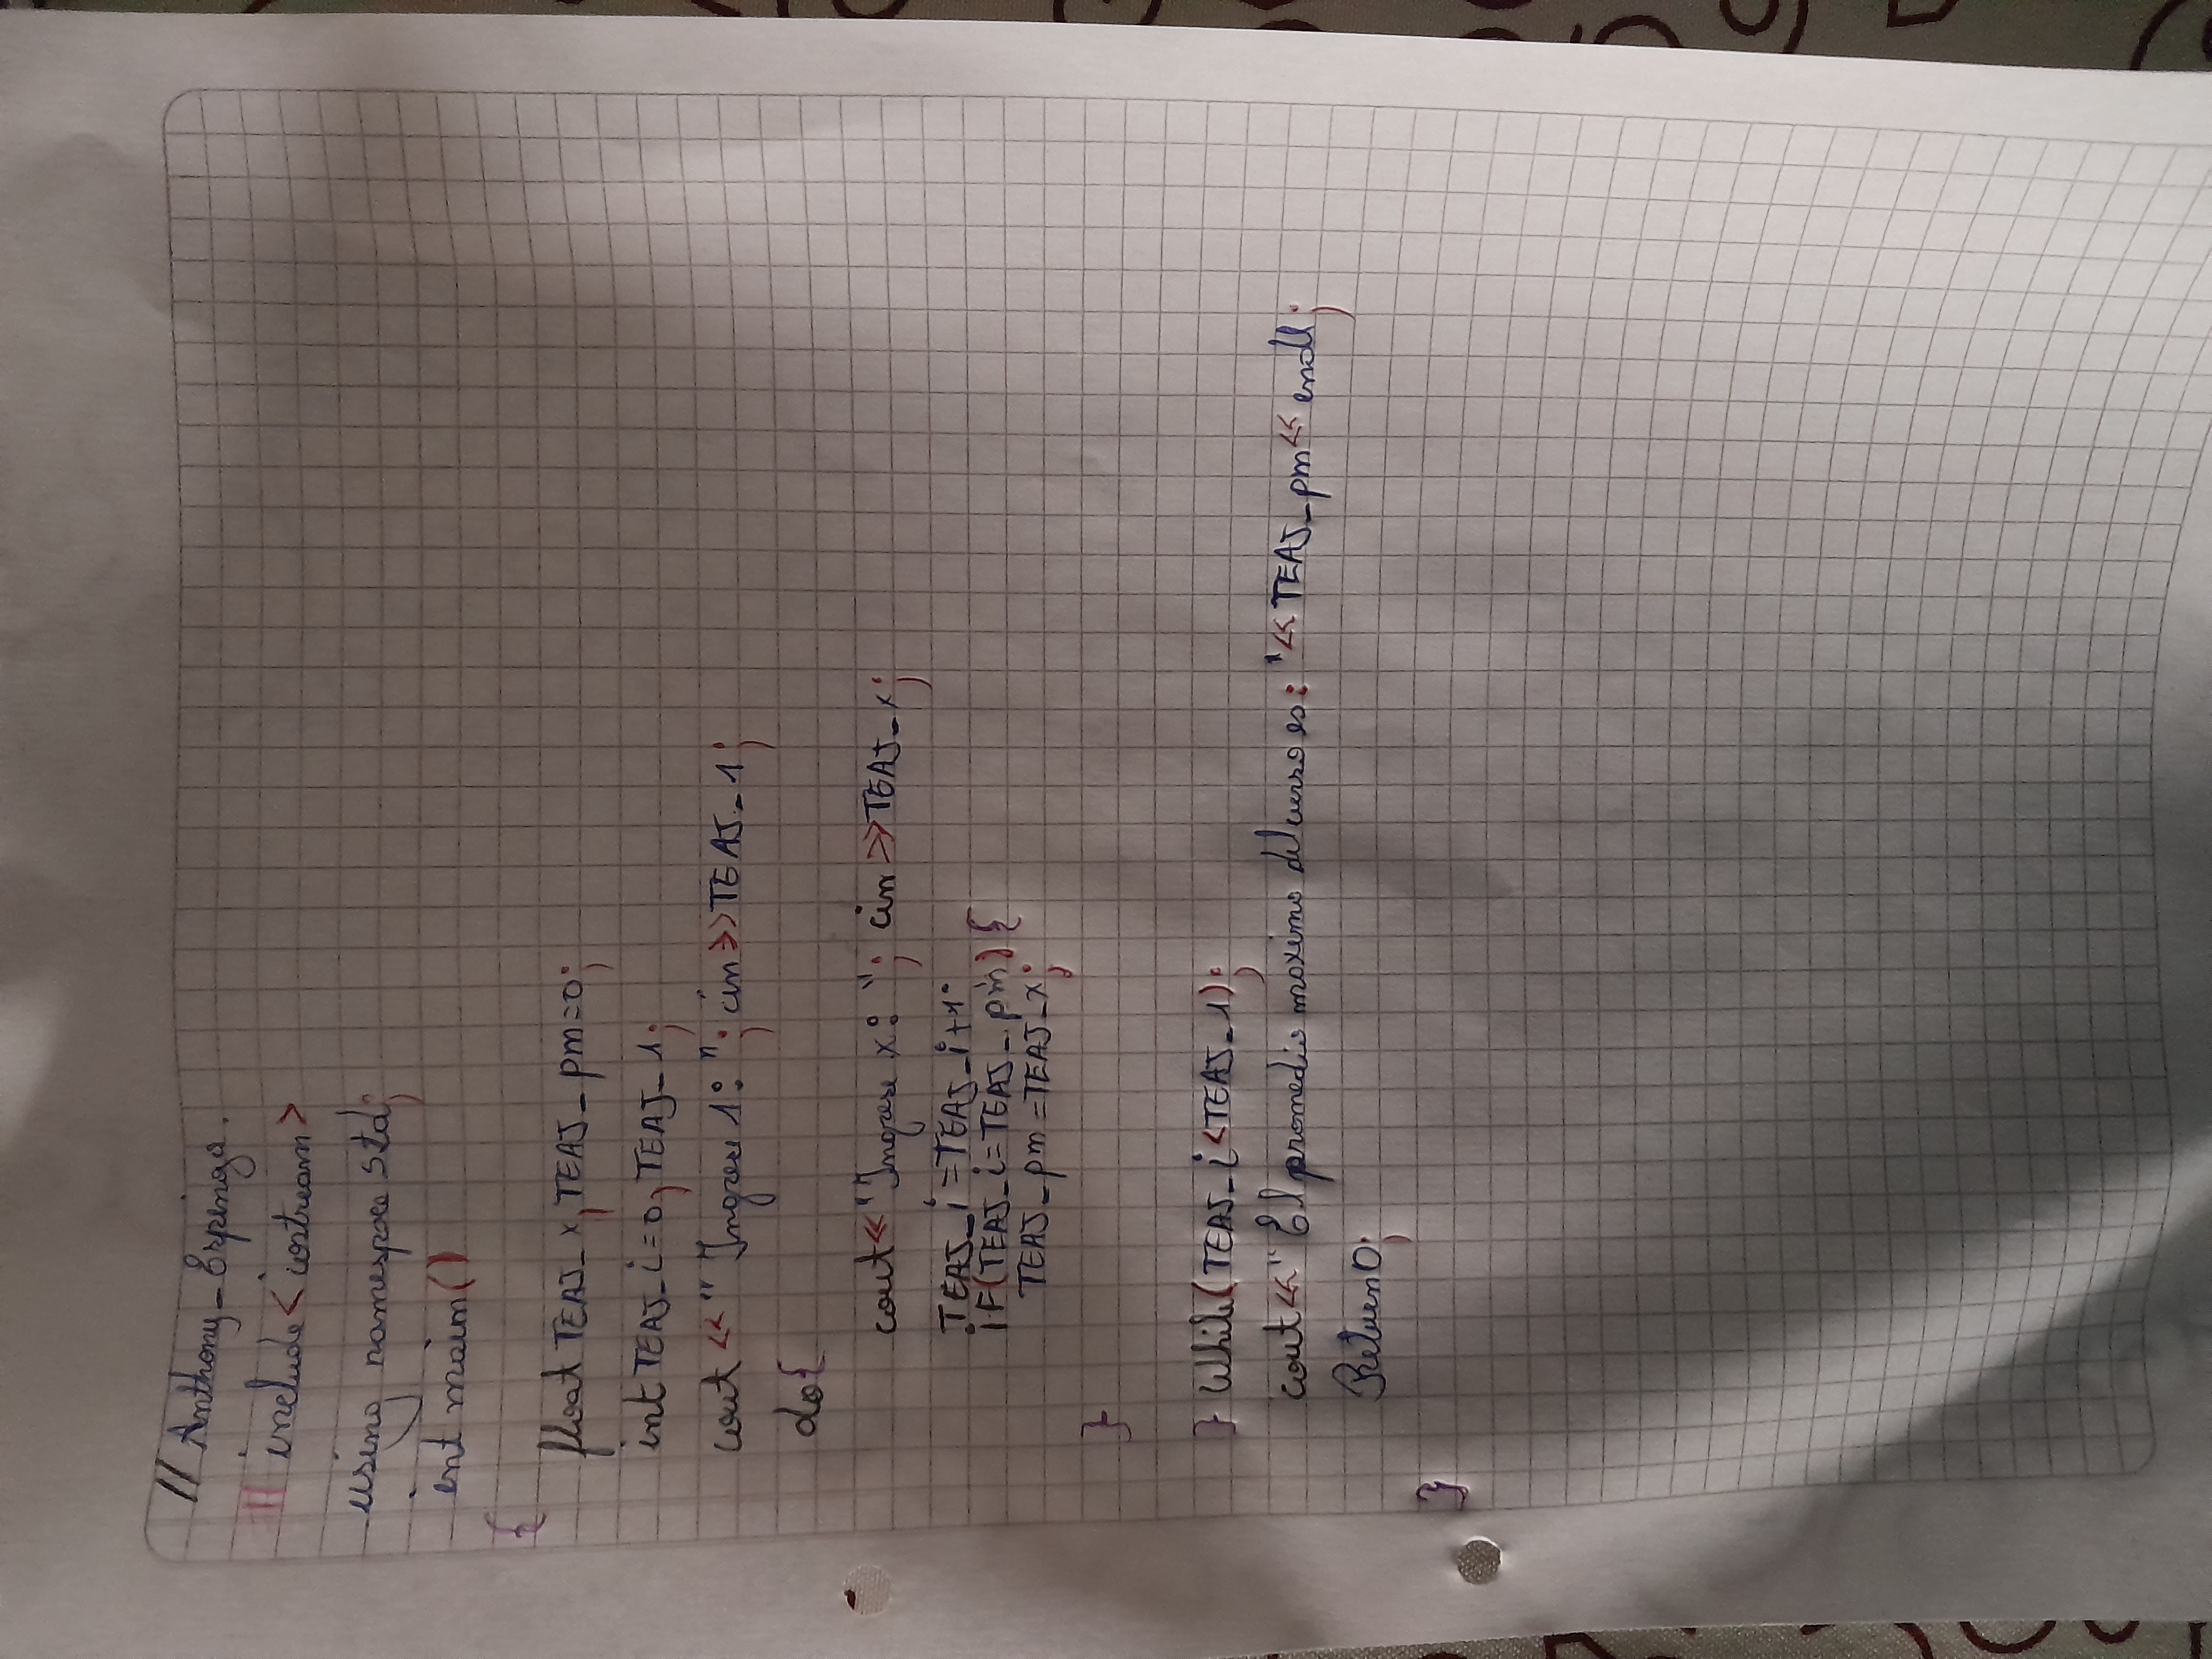 // Anthony_Erpinga.
# include<iostream>
using namespace std;
int main()
{
float TEAJ_x, TEAJ_pm=0;
int TEAJ_i=0, TEAJ_1;
cout << "Ingrese 1: "; cin>>TEAJ_1;
do{
cout<< "Ingrese x: "; cin >>TEAJ_x;
TEAJ_i=TEAJ_i+1;
iF(TEAJ_i=TEAJ_pm){
TEAJ_pm=TEAJ_x;
}
} While(TEAJ_i<TEAJ_1);
cout<<"El promedio maximo del curso es: "<<TEAJ_pm<< endl;
Return0;
}